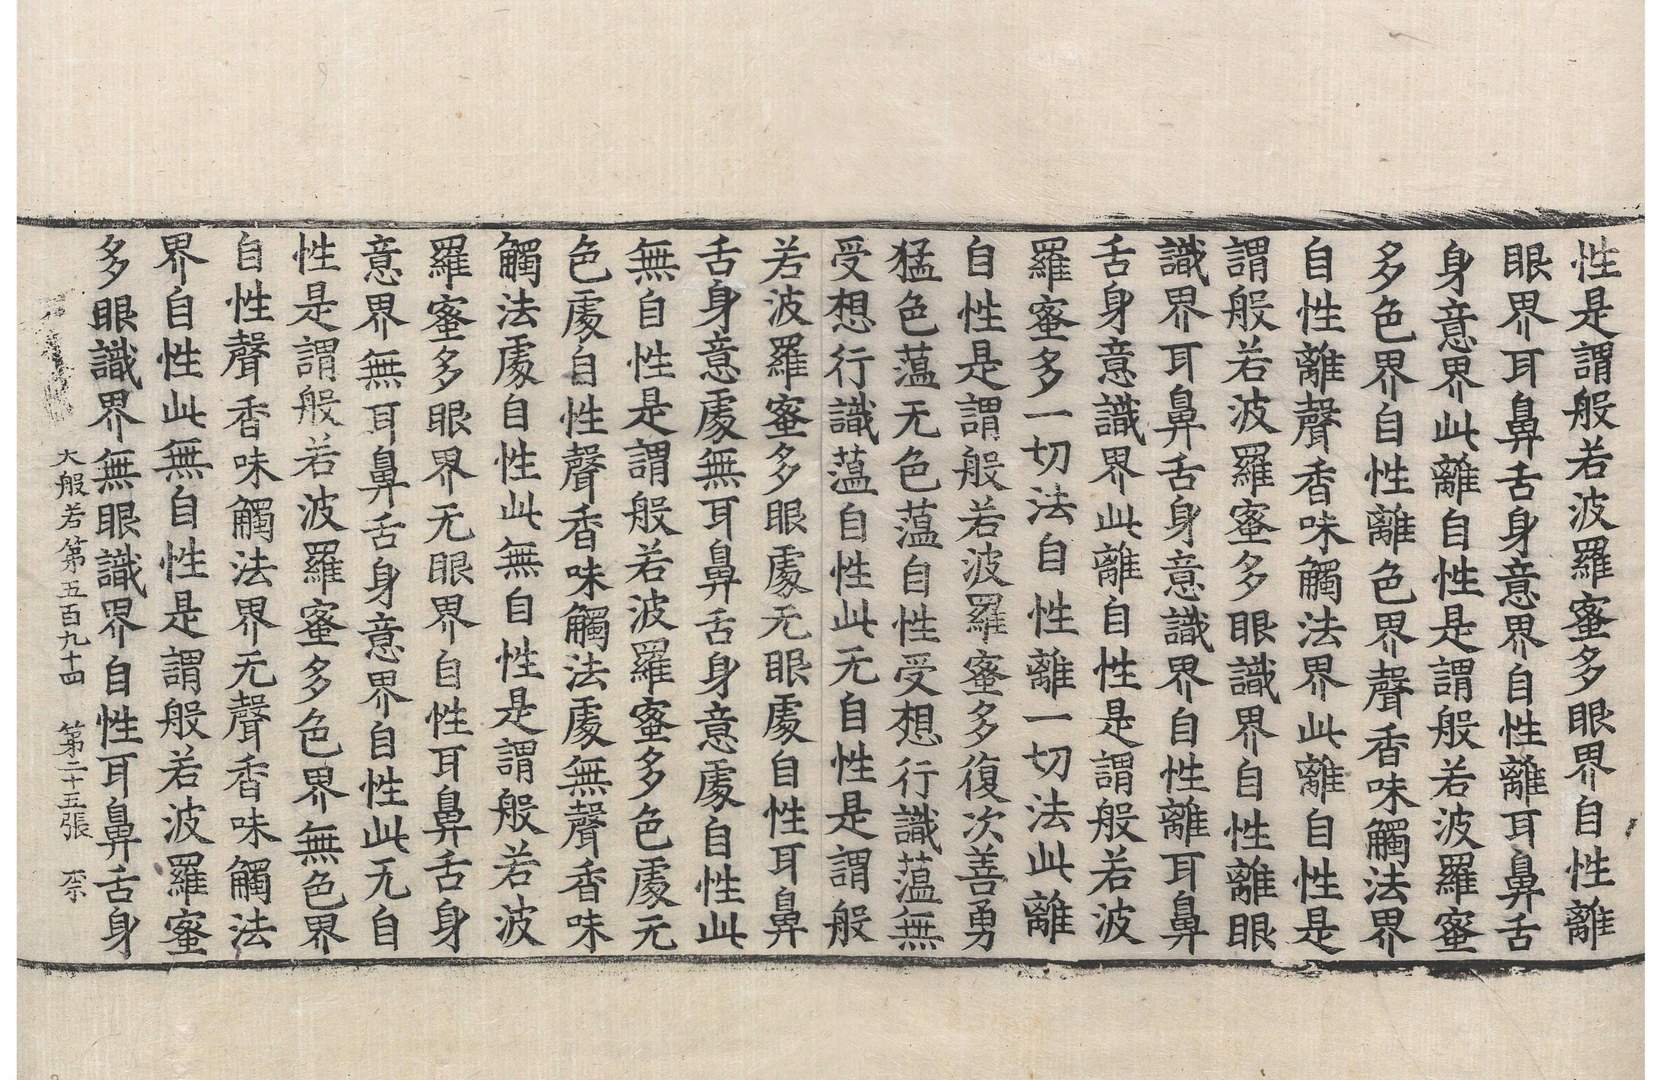 性是謂般若波羅蜜多眼界自性離
眼界耳鼻舌身意界自性離耳鼻舌
身意界此離自性是謂般若波羅蜜
多色界自性離色界聲香味觸法界
自性離聲香味觸法界此離自性是
謂般若波羅蜜多眼識界自性離眼
識界耳鼻舌身意識界自性離耳鼻
舌身意識界此離自性是謂般若波
羅蜜多一切法自性離一切法此離
自性是謂般若波羅蜜多復次善勇
猛色薀无色薀自性受想行識薀無
受想行識薀自性此无自性是謂般
若波羅蜜多眼處无眼處自性耳鼻
舌身意處無耳鼻舌身意處自性此
無自性是謂般若波羅蜜多色處无
色處自性聲香味觸法處無聲香味
觸法處自性此無自性是謂般若波
羅蜜多眼界无眼界自性耳鼻舌身
意界無耳鼻舌身意界自性此无自
性是謂般若波羅蜜多色界無色界
自性聲香味觸法界无聲香味觸法
界自性此無自性是謂般若波羅蜜
多眼識界無眼識界自性耳鼻舌身
大般若第五百九十四 第二十五張 柰